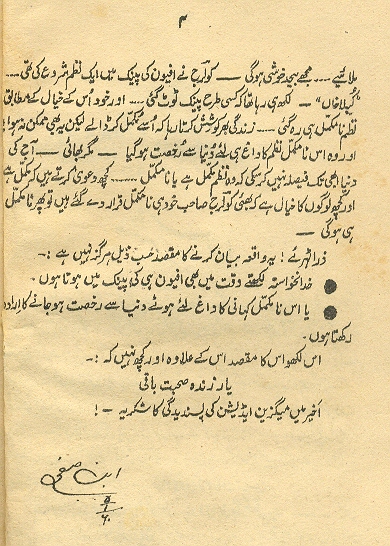 ۴
ملائیے .... مجھے بیحد خوشی ہوگی — کولرج نے افیون کی پینک میں ایک نظم شروع کی تھی ....
"کُبلا خاں" – لکھ ہی رہا تھا کہ کسی طرح پینک ٹوٹ گئی .... اور خود اُس کے خیال کے مطابق
نظم نامکمل ہی رہ گئی .... زندگی بھر کوشش کرتا رہا کہ اُسے مکمل کر ڈالے لیکن یہ بھی ممکن نہ ہوا
اور وہ اس نامکمل نظم کا داغ ہی لئے دُنیا سے رُخصت ہو گیا — مگر بھائی – آج کی
دنیا ابھی تک فیصلہ نہیں کر سکی کہ وہ نظم مکمل ہے یا نامکمل .... کچھ دعویٰ کرتے ہیں کہ مکمل ہے
اور کچھ لوگوں کا خیال ہے کہ بھئی کولرج صاحب خود ہی نامکمل قرار دے گئے ہیں تو پھر نامکمل
ہی ہوگی —
ذرا ٹھہریئے! یہ واقعہ بیان کرنے کا مقصد حسب ذیل ہرگز نہیں ہے :۔
● خدانخواستہ لکھتے وقت میں بھی افیون ہی کی پینک میں ہوتا ہوں۔
● یا اس نامکمل کہانی کا داغ لئے ہوئے دنیا سے رخصت ہو جانے کا ارادہ
رکھتا ہوں۔
اس لکھواس کا مقصد اس کے علاوہ اور کچھ نہیں کہ :۔
یار زندہ صحبت باقی
اخیر میں میگزین ایڈیشن کی پسندیدگی کا شکریہ – !
ابن صفی